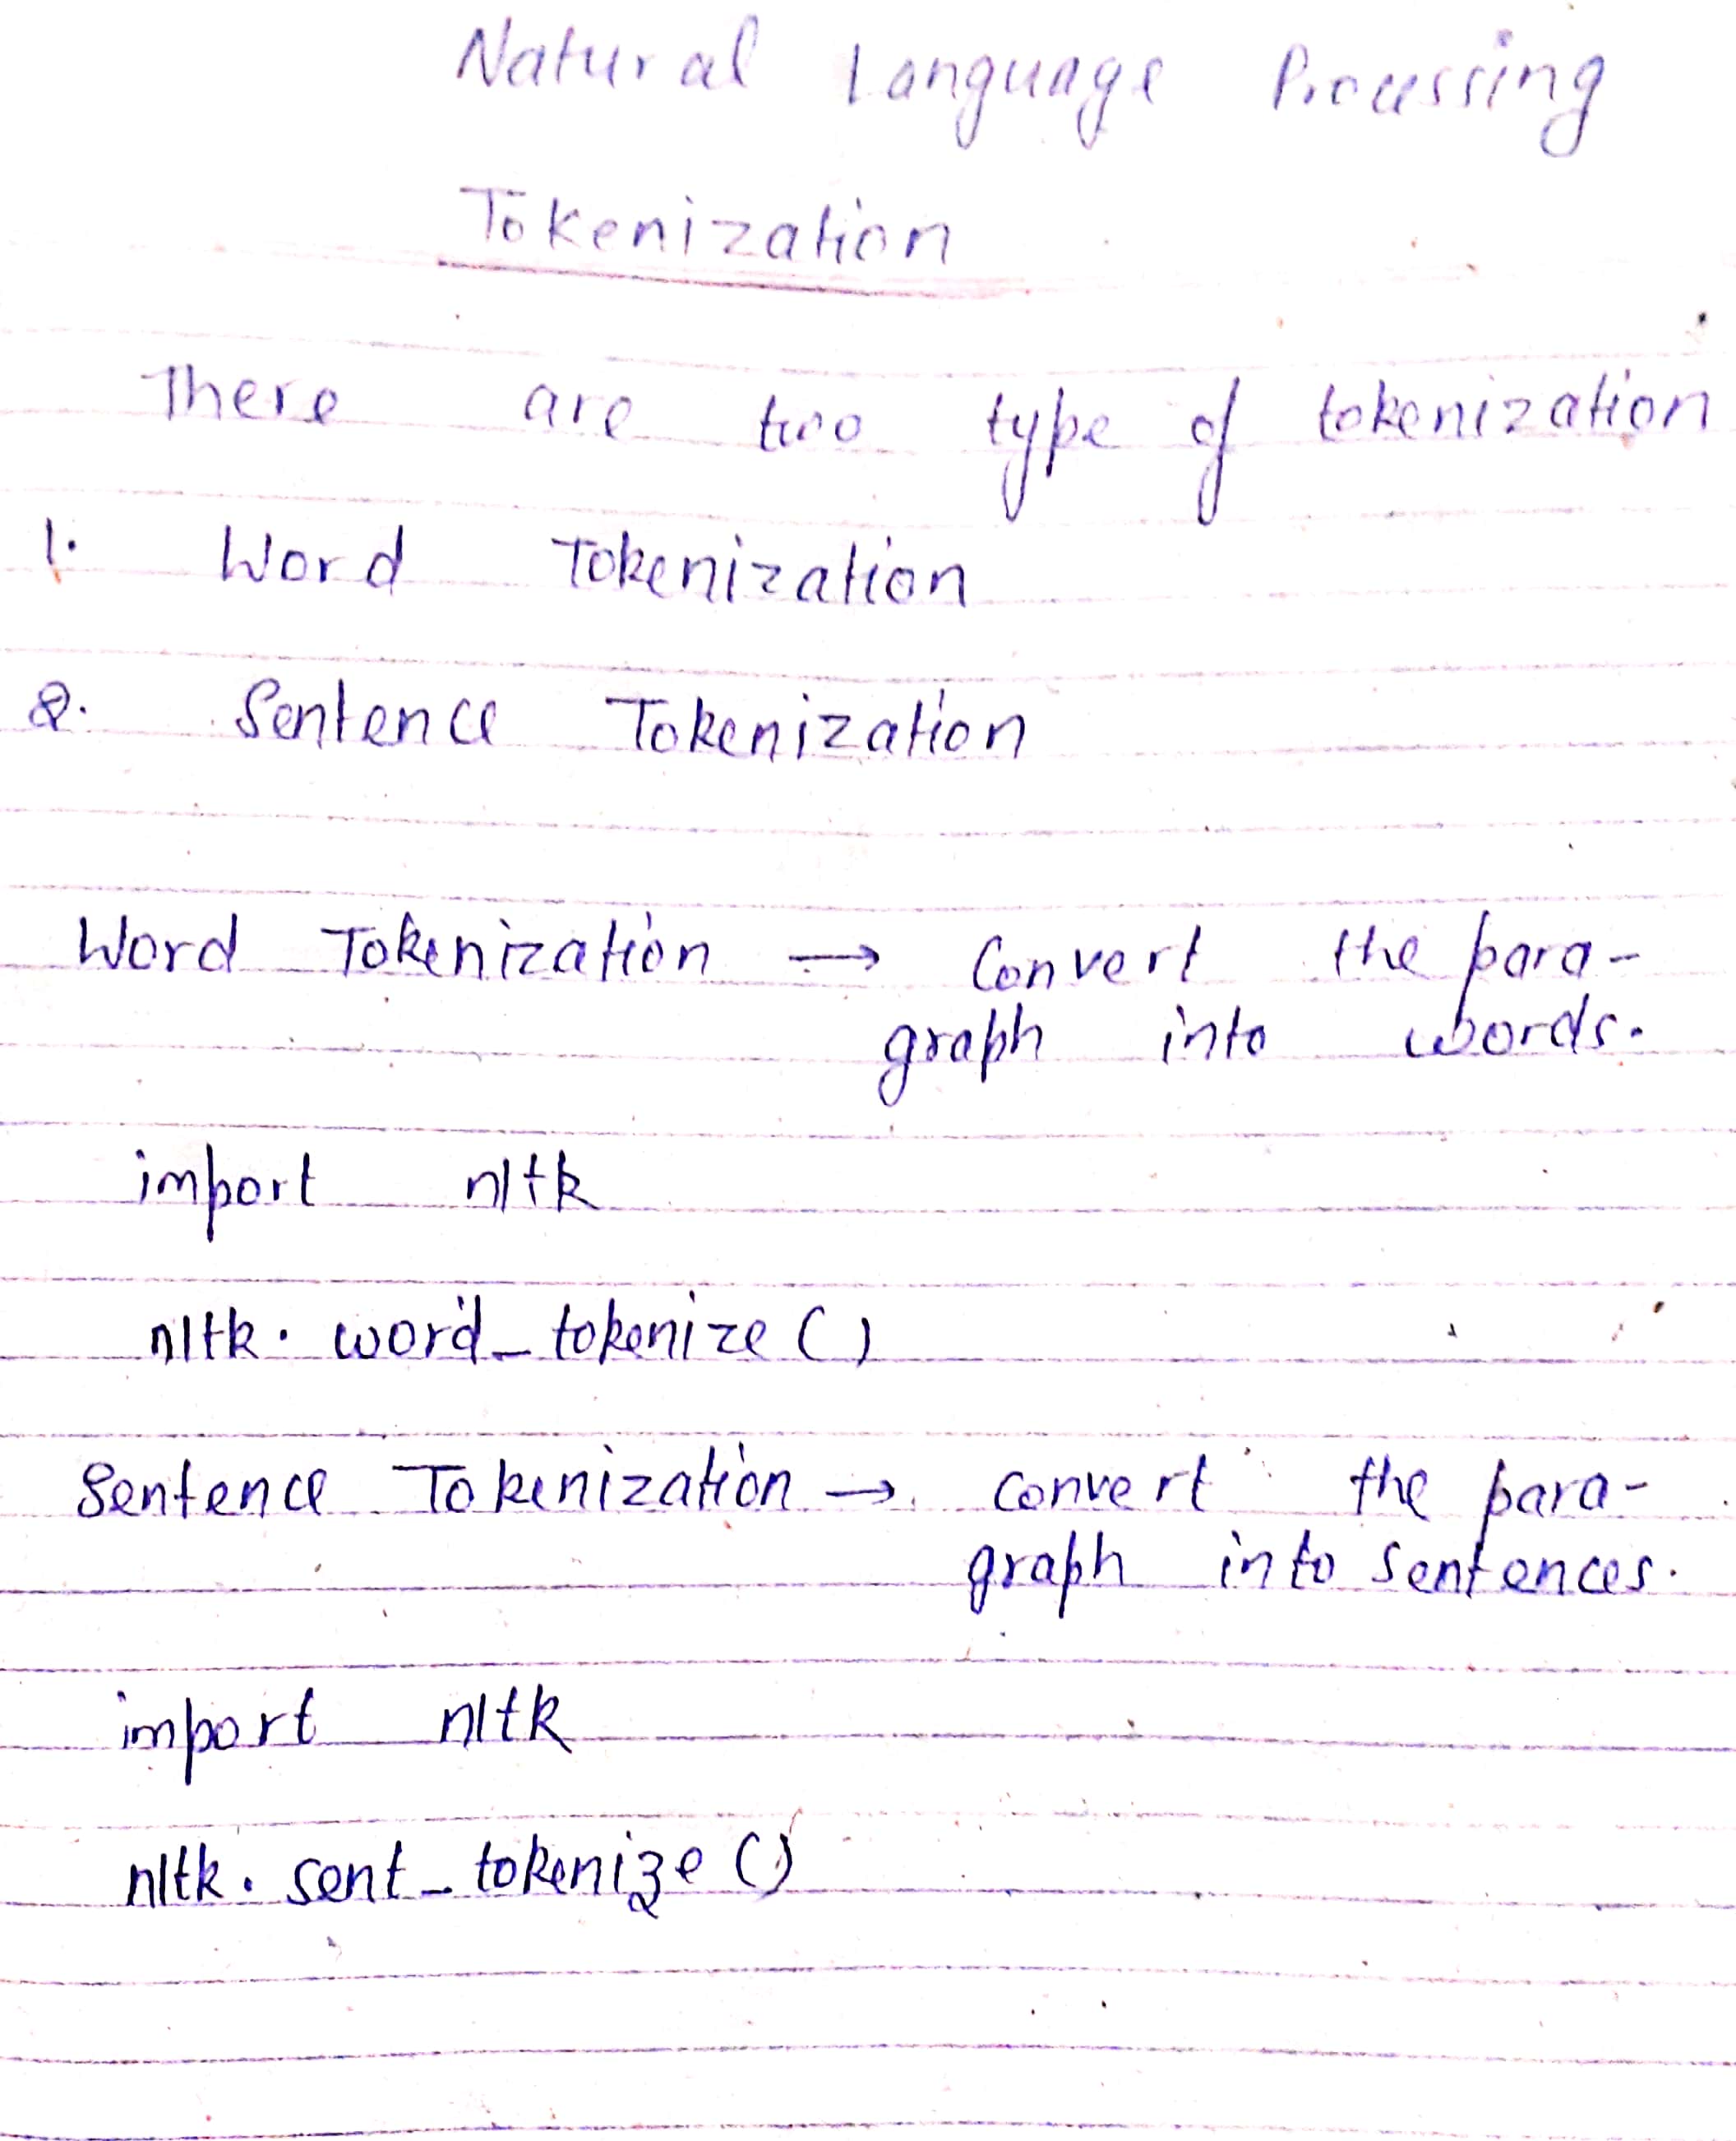 Natural Language Processing
Tokenization
There are two type of tokenization
1. Word Tokenization
2. Sentence Tokenization
Word Tokenization → Convert the para-
graph into words.
import nltk
nltk. word_tokenize ()
Sentence Tokenization → convert the para-
graph into sentences.
import nltk
nltk. sent_tokenize ()